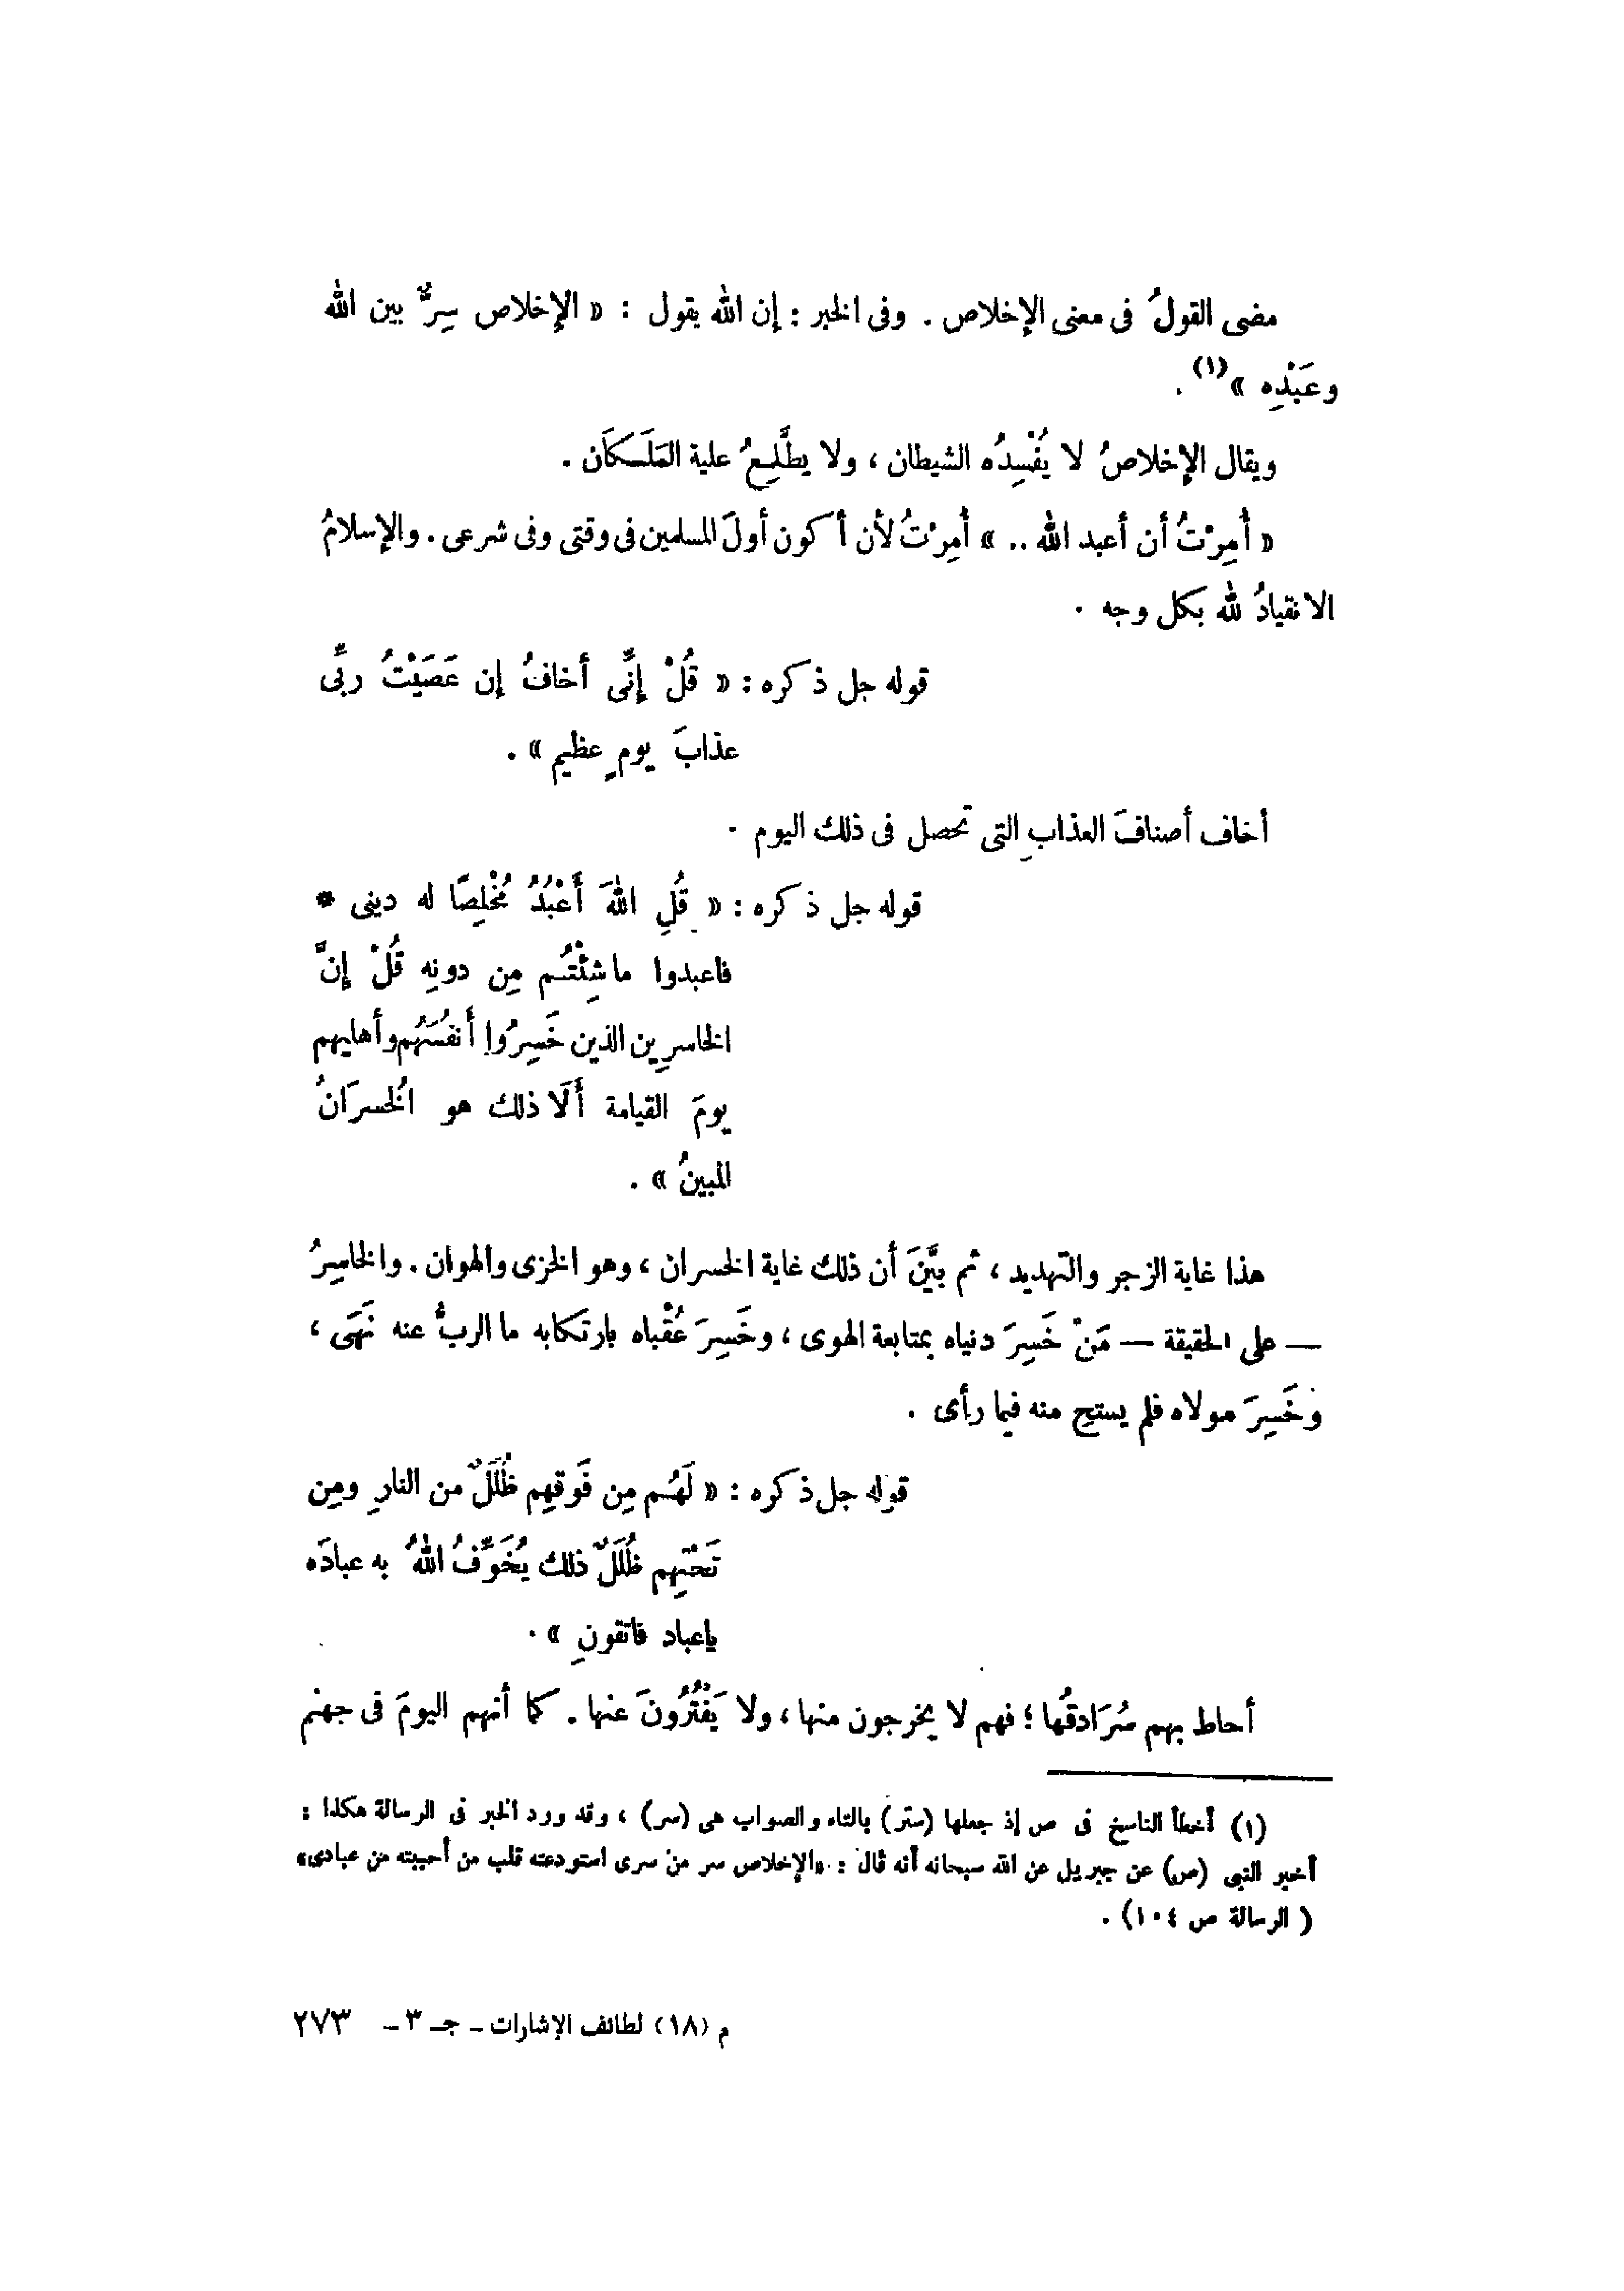 مضى القولُ فى معنى الإخلاص . وفى الخبر : إن الله يقول : « الإخلاص سِرٌّ بين الله
وعَبْدِه »(١) .
ويقال الإخلاصُ لا يُفْسِدُه الشيطان ، ولا يطَّلِعُ علية المَلَكَان .
« أُمِرْتُ أن أعبد الله .. » أُمِرْتُ لأن أكون أولَ المسلمين فى وقتى وفى شرعى . والإسلامُ
الانقيادُ لله بكل وجه .
قوله جل ذكره : « قُلْ إنِّى أخافُ إن عَصَيْتُ ربِّى
عذابَ يومٍ عظيم » .
أخاف أصنافَ العذابِ التى تحصل فى ذلك اليوم .
قوله جل ذكره : « قُلِ اللهَ أَعْبُدُ مُخْلِصًا له دينى *
فاعبدوا ماشِئْتُم مِن دونِه قُلْ إنَّ
الخاسرِين الذين خَسِرُوا أَنفُسَهُم وأهليهم
يومَ القيامة أَلَا ذلك هو الُخسرَانُ
المبينُ » .
هذا غاية الزجر والتهديد ، ثم بيَّنَ أن ذلك غاية الخسران ، وهو الخزى والهوان . والخاسِرُ
— على الحقيقة — مَنْ خَسِرَ دنياه بمتابعة الهوى ، وخَسِرَ عُقْباه بارتكابه ما الربُّ عنه نَهَى ،
وخَسِرَ مولاه فلم يستحِ منه فيما رأى .
قوله جل ذكره : « لَهُم مِن فَوقهِم ظُلَلٌ من النارِ ومِن
تَحْتِهم ظُلَلٌ ذلك يُخَوِّفُ اللهُ به عبادَه
ياعباد فاتقونِ » .
أحاط بهم سُرَادقُها ؛ فهم لا يخرجون منها ، ولا يَفْتُرُونَ عنها . كما أنهم اليومَ فى جهنم
(١) أخطأ الناسخ فى ص إذ جعلها (ستر) بالتاء والصواب هى (سر) ، وقد ورد الخبر فى الرسالة هكذا :
أخبر النبى (ص) عن جبريل عن الله سبحانه أنه قال : «الإخلاص سر من سرى استودعته قلب من أحببته من عبادى»
( الرسالة ص ١٠٤) .
م (١٨) لطائف الإشارات ـ جـ ٣ ـ ٢٧٣